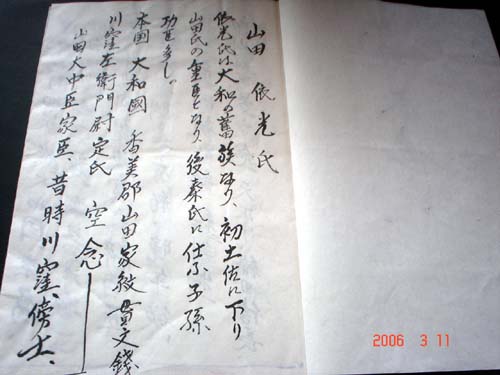 山田 依光氏
依光氏は大和の舊族なり、初土佐に下り
山田氏の重臣となり、後秦氏に仕ふ子孫
功甚多し。
本国 大和國 香美郡山田家紋 貫文錢
川窪左衛門尉定氏 空念
山田大中臣家臣、昔時川窪、傍士、
2006 3 11